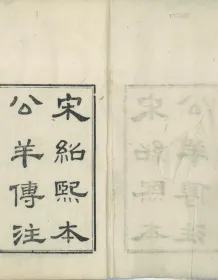 宋紹熙本
公羊傳注